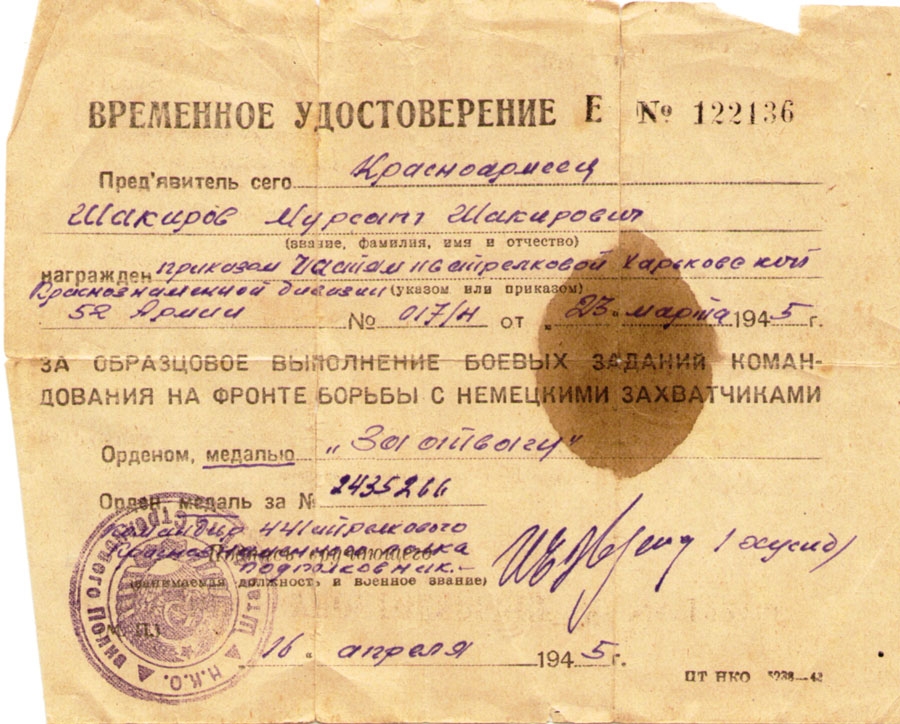 ВРЕМЕННОЕ УДОСТОВЕРЕНИЕ Е № 122136
Пред'явитель сего Красноармеец
Шакиров Мурсант Шакирович
(звание, фамилия, имя и отчество)
награжден приказом стрелковой Харьковской
Краснознаменной дивизии (указом или приказом)
52 Армии № 017/н от „23" марта 1945 г.
ЗА ОБРАЗЦОВОЕ ВЫПОЛНЕНИЕ БОЕВЫХ ЗАДАНИЙ КОМАН-
ДОВАНИЯ НА ФРОНТЕ БОРЬБЫ С НЕМЕЦКИМИ ЗАХВАТЧИКАМИ
Орденом, медалью „За отвагу"
Орден, медаль за № 2435266
Командир 441 стрелкового
Краснознаменного полка
подполковник
(занимаемая должность и военное звание)
М. П.
16 апреля 1945 г.
Н.К.О.
Штаб
ПТ НКО 5238—42